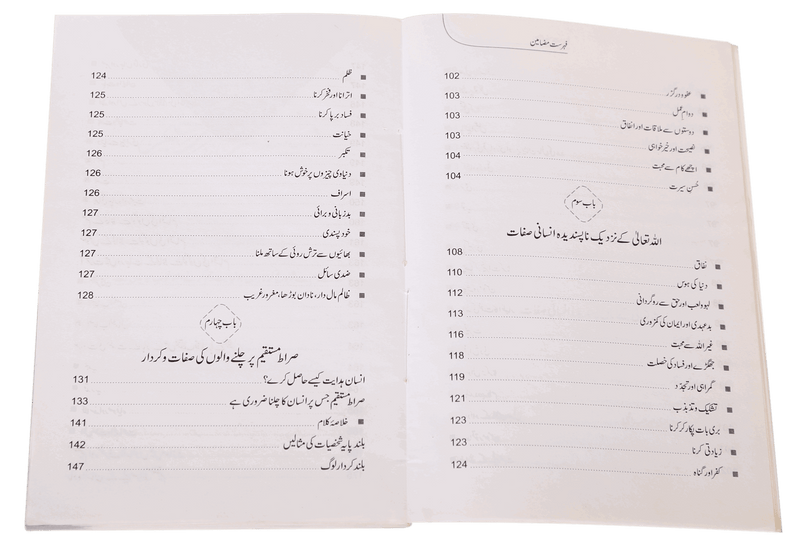 فہرست مضامین
عفو و درگزر 102
دوام عمل 103
دوستوں سے ملاقات اور انفاق 103
نصیحت اور خیر خواہی 103
اچھے کام سے محبت 104
حُسنِ سیرت 104
باب سوم
اللہ تعالیٰ کے نزدیک ناپسندیدہ انسانی صفات
نفاق 108
دنیا کی ہوس 110
لہو ولعب اور حق سے روگردانی 112
بدعہدی اور ایمان کی کمزوری 113
غیر اللہ سے محبت 116
جھگڑے اور فساد کی خصلت 118
گمراہی اور تجدّد 119
تشکیک و تذبذب 121
بری بات پکار کر کرنا 123
زیادتی کرنا 123
کفر اور گناہ 124
ظلم 124
اترانا اور فخر کرنا 125
فساد برپا کرنا 125
خیانت 125
تکبر 126
دنیاوی چیزوں پر خوش ہونا 126
اسراف 126
بدزبانی و برائی 127
خود پسندی 127
بھائیوں سے ترش روئی کے ساتھ ملنا 127
ضدی سائل 127
ظالم مال دار، نادان بوڑھا، مغرور غریب 128
باب چہارم
صراط مستقیم پر چلنے والوں کی صفات و کردار
انسان ہدایت کیسے حاصل کرے؟ 131
صراط مستقیم جس پر انسان کا چلنا ضروری ہے 133
خلاصۂ کلام 141
بلند پایہ شخصیات کی مثالیں 142
بلند کردار لوگ 147